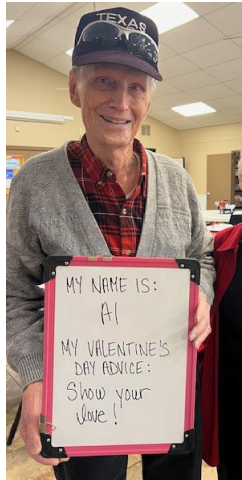 TEXAS
MY NAME IS:
Al
MY VALENTINE'S
DAY ADVICE:
Show your
love!